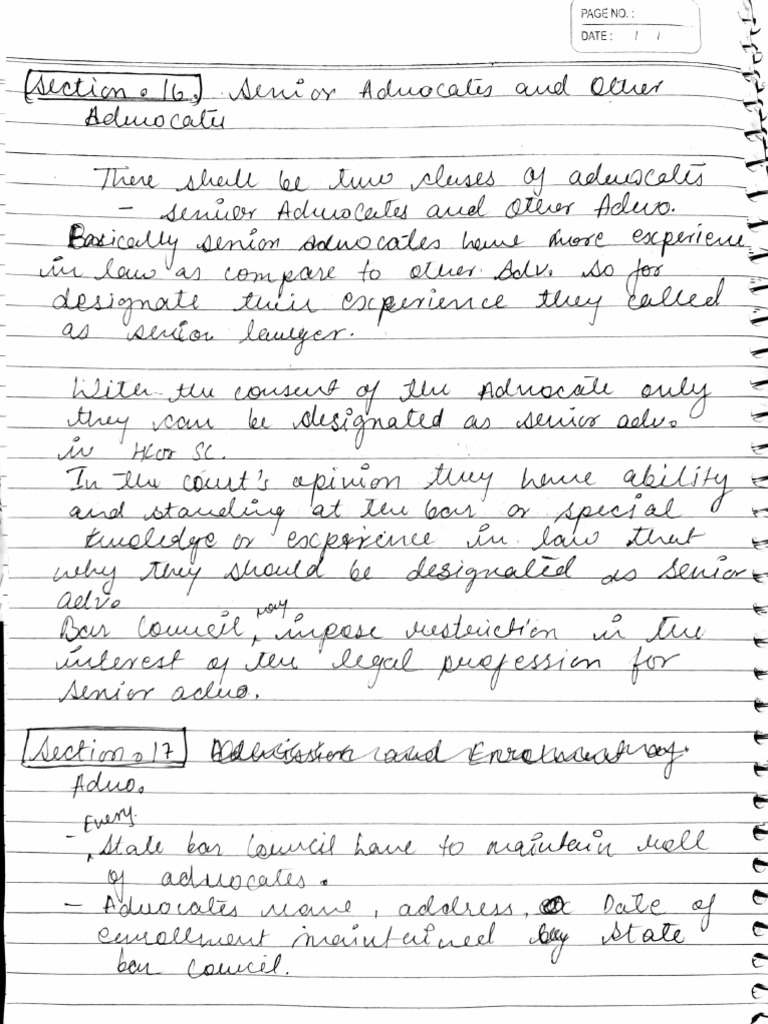 PAGE NO. :
DATE : / /
Section . 16. Senior Advocates and Other
Advocate
There shall be two clases of advocates
- senior Advocates and Other Advo.
Basically senior advocates have more experience
in law as compare to other Adv. so for
designate their experience they called
as senior lawyer.
With the consent of the Advocate only
they can be designated as senior adv.
in HC or SC.
In the court's opinion they have ability
and standing at the bar or special
knoledge or experience in law that
why they should be designated as senior
adv.
Bar Council, may impose restriction in the
interest of the legal profession for
senior advo.
Section . 17 Admission and Enrolment of
Advo.
Every
- State bar Council have to maintain roll
of advocates.
- Advocates name, address, Date of
enrollment maintained by State
bar council.